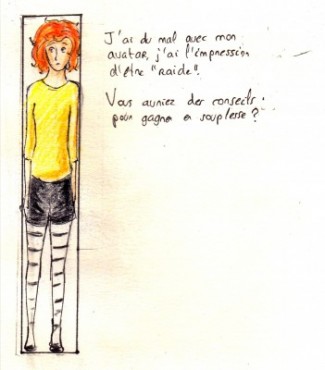 J'ai du mal avec mon
avatar, j'ai l'impression
d'être "raide".
Vous auriez des conseils
pour gagner en souplesse ?